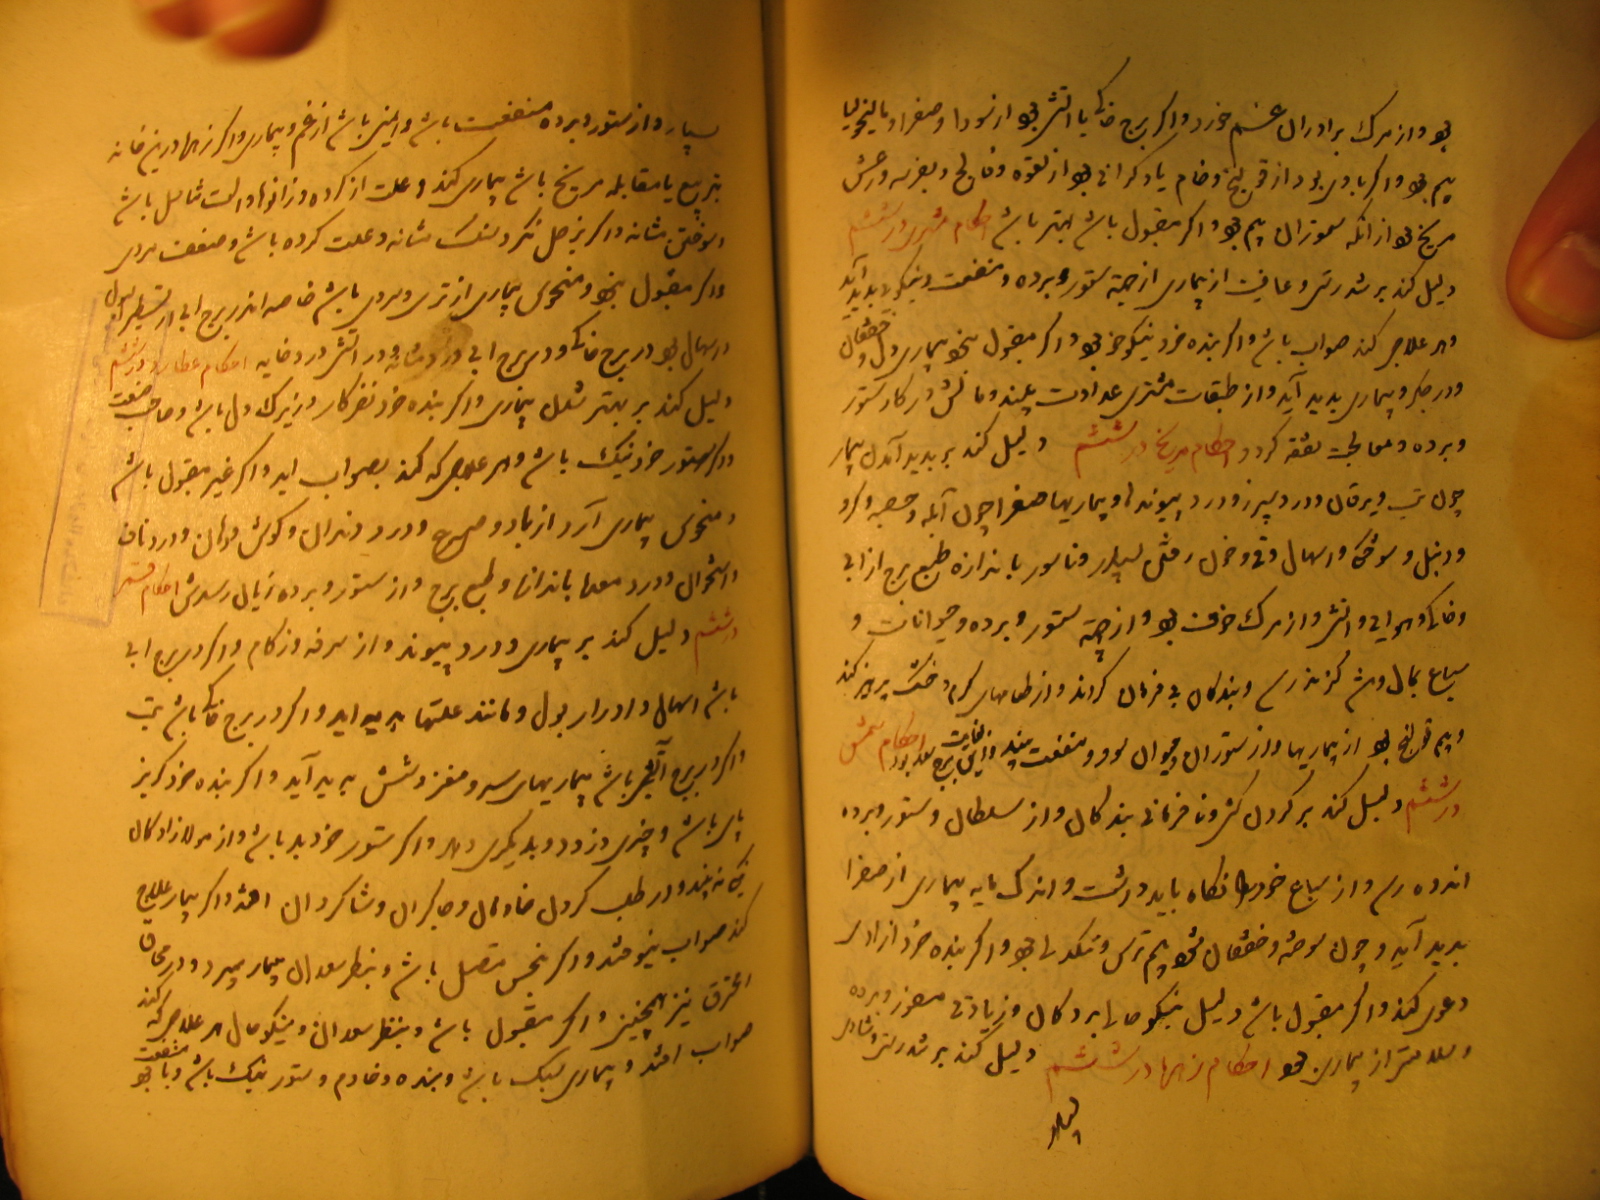 بود و از مرک برادران غم خورد و اکر برج خاکی یا اتشی بود از سودا و صفرا و مالیخولیا
بیم بود و اکر بادی بود از قولنج و خام یاد کرانی بود از لقوه و فالج و
مریخ بود از انکه ستوران بیم بود و اکر مقبول باشد بهتر باشد احکام مشتری در ششم
دلیل کند بر تندرستی و عافیت از بیماری از جهة ستور و برده و منفعت و نیکویی بدید آید
و هر علاجی کند صواب باشد و اکر بنده خرد نیکو خو بود و اکر مقبول نبود بیماری دل و خفقان
و درد جکر و بیماری بدید آید و از طبقات مشتری عداوت بیند و مانش در کار ستور
و برده و معالجت نفقه کردد احکام مریخ در ششم دلیل کند بر بدید آمدن بیمار
چون تب و یرقان و درد سپرز و درد پیوندها و بیماریها صفرا چون آبله و حصبه و کرد
و دنبل و سوختکی و اسهال و قی و خون رفتن بسیار و ناسور باندازه طبع برج از ابی
و خاکی و هوایی و اتشی و از مرک خوف بود و از جهة ستور و برده و حیوانات و
سباع بمال وتن کزند رسد و بندکان بی فرمان کردند و از طعامهای کرم و خشک پرهیز کند
و بیم قولنج بود از بیماریها و از ستوران و حیوان سود و منفعت بیند و این برج بغایت بد بود احکام شمس
در ششم دلیل کند بر کردن کشی و نافرمانی بندکان و از سلطان و ستور و برده
اندوه رسد و از سباع خود را نکاه باید داشت و اندک مایه بیماری از صفرا
بدید آید و چون سوخته و خفقان بیم ترس و تنکدلی بود و اکر بنده خرد ازادی
دعوی کند و اکر مقبول باشد دلیل نیکو حالی بردکان و زیادتی ستور و برده
و سلامتی از بیماری بود احکام زهره در ششم دلیل کند بر تندرستی و شادی
بسیار
بسیار و از ستور و برده منفعت باشد و ایمنی باشد از غم و بیماری و اکر زهره درین خانه
بتربیع یا مقابله مریخ باشد بیماری کند و علت از کرده و زانوها و الت تناسل باشد
و سوختن مثانه و اکر بزحل نکرد سنک مثانه و علت کرده باشد و ضعف مردی
و اکر مقبول نبود و منحوس بیماری از تری و سردی باشد خاصه اندر برج ابی از تقطیر البول
و اسهال بود در برج خاکی و در برج ابی درد مثانه و در اتشی درد خایه احکام عطارد در ششم
دلیل کند بر بهتر شدن بیماری و اکر بنده خرد نغز کار و زیرک دل باشد و صاحب صنعت
و اکر ستور خرد نیک باشد و هر علاجی که کند بصواب اید و اکر غیر مقبول باشد
و منحوس بیماری آرد از باد و صرع و درد دندان و کوش و دهان و درد ناف
و استخوان و درد معدا باندازه و طبع برج و از ستور و برده زیان رسدش احکام قمر
در ششم دلیل کند بر بیماری و درد پیوند و از سرفه و زکام و اکر در برج ابی
باشد اسهال و ادرار بول و مانند علتها پدید اید و اکر در برج خاکی باشد تب
و اکر در برج آتشی باشد بیماریهای سر و مغز و شش پدید آید و اکر بنده خرد کریز
پای باشد و چیزی دزدد و بدیکری دهد و اکر ستور خرد بد باشد و از مولازادکان
نیکی نه بیند و در طلب کردن خادمان و چاکران و شاکردان افتد و اکر بیمار علاج
کند صواب نیوفتد و اکر بنحس متصل باشد و بنظر سعدان بیمار میرد و در محاق
احتراق نیز همچنین و اکر مقبول باشد و بنظر سعدان و نیکو حال هر علاجی که کند
صواب افتد و بیماری سبک باشد و بنده و خادم و ستور نیک باشد و با منفعت بود